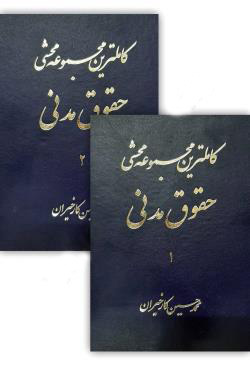 کاملترین مجموعه محشی
حقوق مدنی
۲
کارخیران
کاملترین مجموعه محشی
حقوق مدنی
۱
محمد حسین کارخیران